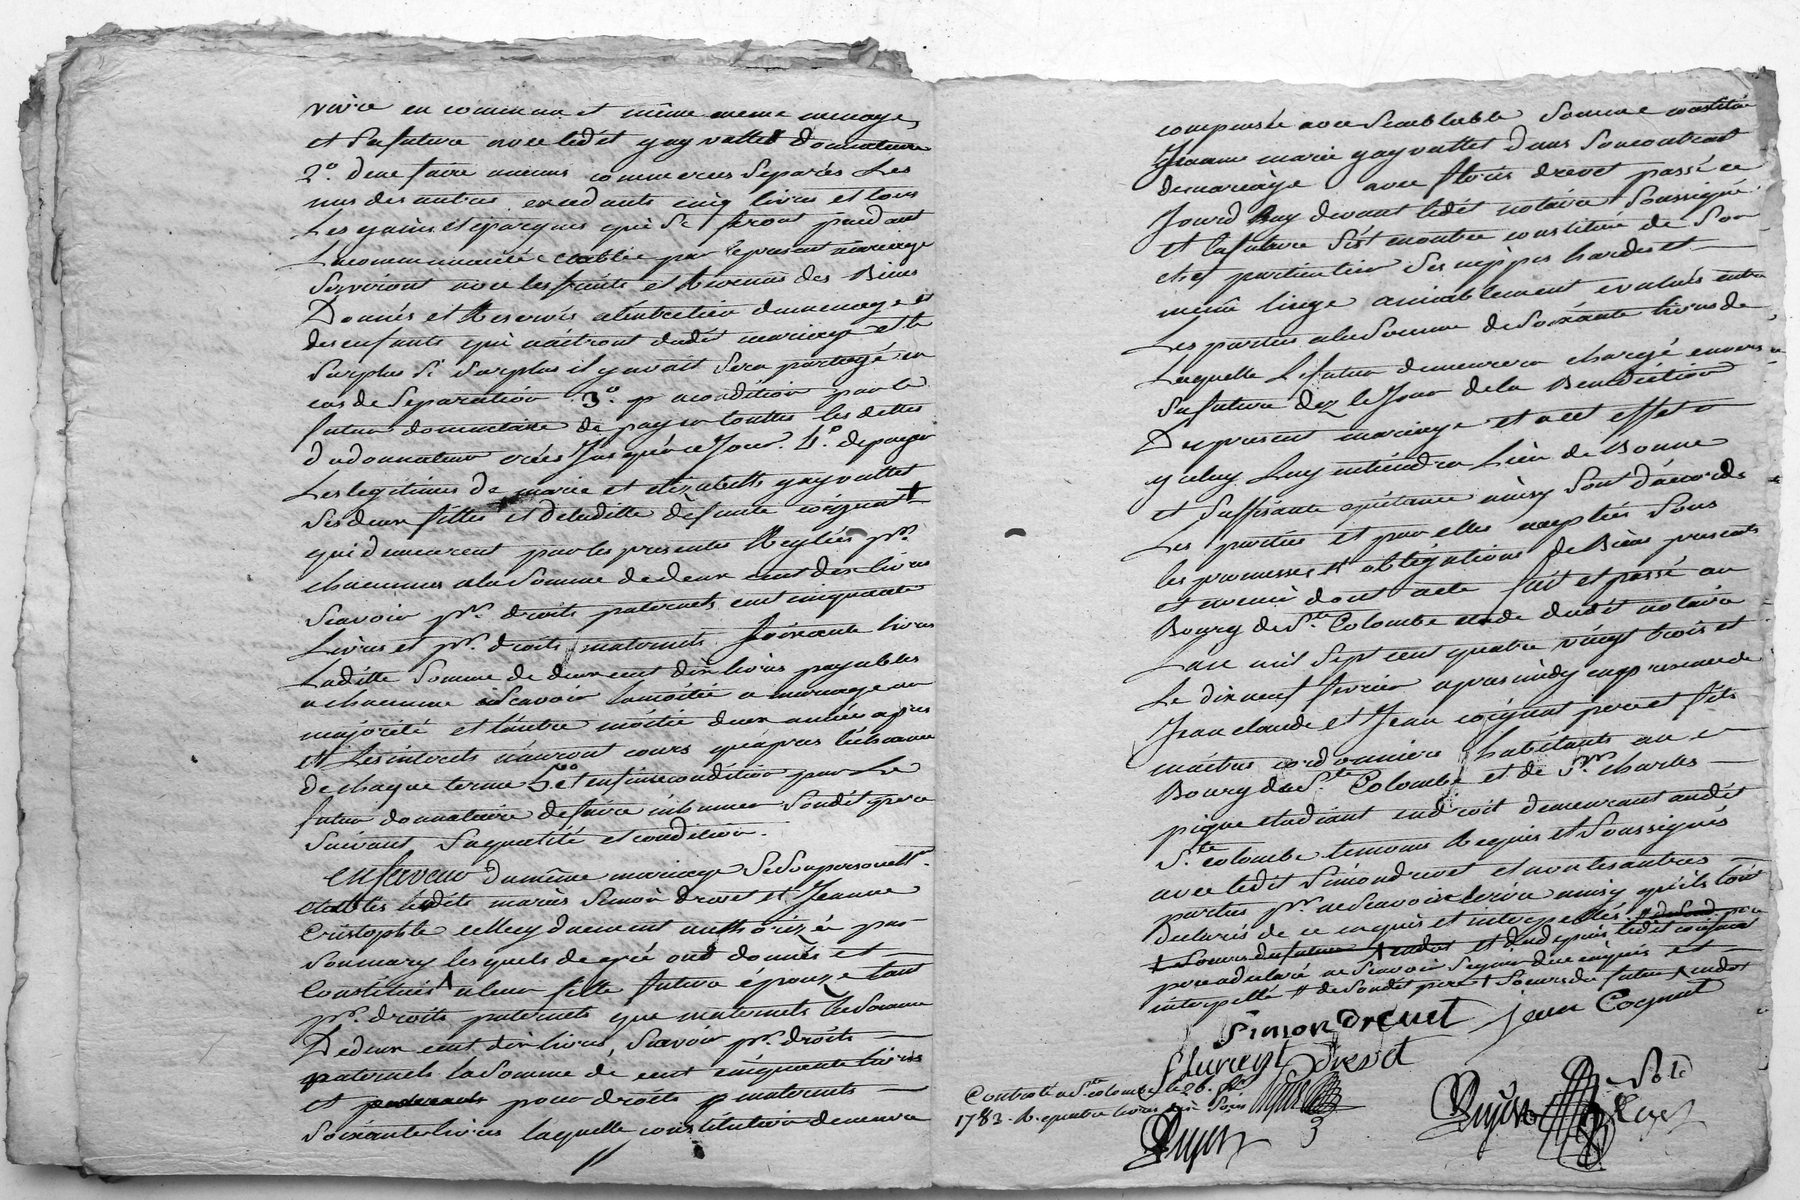 vivre en commun et même meme menage
et sa future avec ledit gayvallet donnateur
2.° de ne faire aucuns commerces separés les
uns des autres excedants cinq livres et tous
Les gains et epargnes qui se feront pendant
La communauté etablie par le present mariage
Serviront avec les fruits et Revenus des Biens
Donnés et Reservés a l'entretien du menage et
des enfants qui naitront dudit mariage et le
surplus si surplus il y avait sera partagé en
cas de separation 3.° a condition par le
futur donnataire de payer touttes les dettes
du donnateur crées Jusqu'à ce Jour. 4.° de payer
Les legitimes de marie et elizabeth gayvallet
ses deux filles et de laditte défunte cognat +
qui demeurent par les presentes Reglées pr.
chacunnes a la somme de deux cent dix livres
scavoir pr. droits paternels cent cinquante
Livres et pr. droits maternels soixante livres
Laditte somme de deux cent dix livres payables
a chacunne scavoir la moitié a mariage ou
majorité et l'autre moitié deux années apres
et Les interets n'auront cours qu'apres l'écheance
de chaque terme 5.° et enfin a condition par Le
futur donnataire de faire inhumer sondit pere
suivant sa qualité et condition.
en faveur du même mariage se sont personnellt.
etablis lesdits mariés Simon drevet et Jeanne
Cristophle elle cy duement authorizée par
son mary lesquels de gré ont donnés et
Constitués a leur fille future épouze tant
pr. droits paternels que maternels la somme
De deux cent dix livres, scavoir pr. droits
paternels la somme de cent cinquante livres
et pour droits maternels
soixante livres laquelle constitution demeure
compensée avec semblable somme constituée
Jeanne marie gayvallet dans son contrat
de mariage avec fleuris drevet passé ce
Jourd'huy devant ledit notaire soussigné
et la future s'est encontre constituée de son
chef particulier ses nippes hardes et
menû linge amiablement evalués entre
Les parties a la somme de soixante livres de
Laquelle Le futur demeurera chargé envers
sa future dez le Jour de la Benediction
Du present mariage et a cet effet
yceluy Luy entiendra Lieu de Bonne
et suffisante quittance ainsy sont d'accords
Les parties et par elles acceptées sous
les promesses et obligations de Biens presents
et avenir dont acte fait et passé au
Bourg de Ste. Colombe etude dudit notaire
L'an mil sept cent quatre vingt trois et
Le dix neuf fevrier apres midy en presence de
Jean claude et Jean cognat pere et fils
maitres cordonniers habitants au
Bourg de Ste. Colombe et de Sr. Charles
pigue etudiant en droit demeurant audit
Ste. Colombe temoins Requis et soussignés
avec ledit Simon drevet et non les autres
parties pr. ne scavoir ecrire ainsy qu'ils l'ont
Declarés de ce enquis et interpellés.
et dudepuis ledit cognat
pere a declaré ne scavoir signer de ce enquis et
interpellé # de sondit pere + soeurs du futur
Simon Drevet jean Cognat
fleurey Drevet
Controlé a Ste. colombe le 26. fer.
1783. R. quatre livres